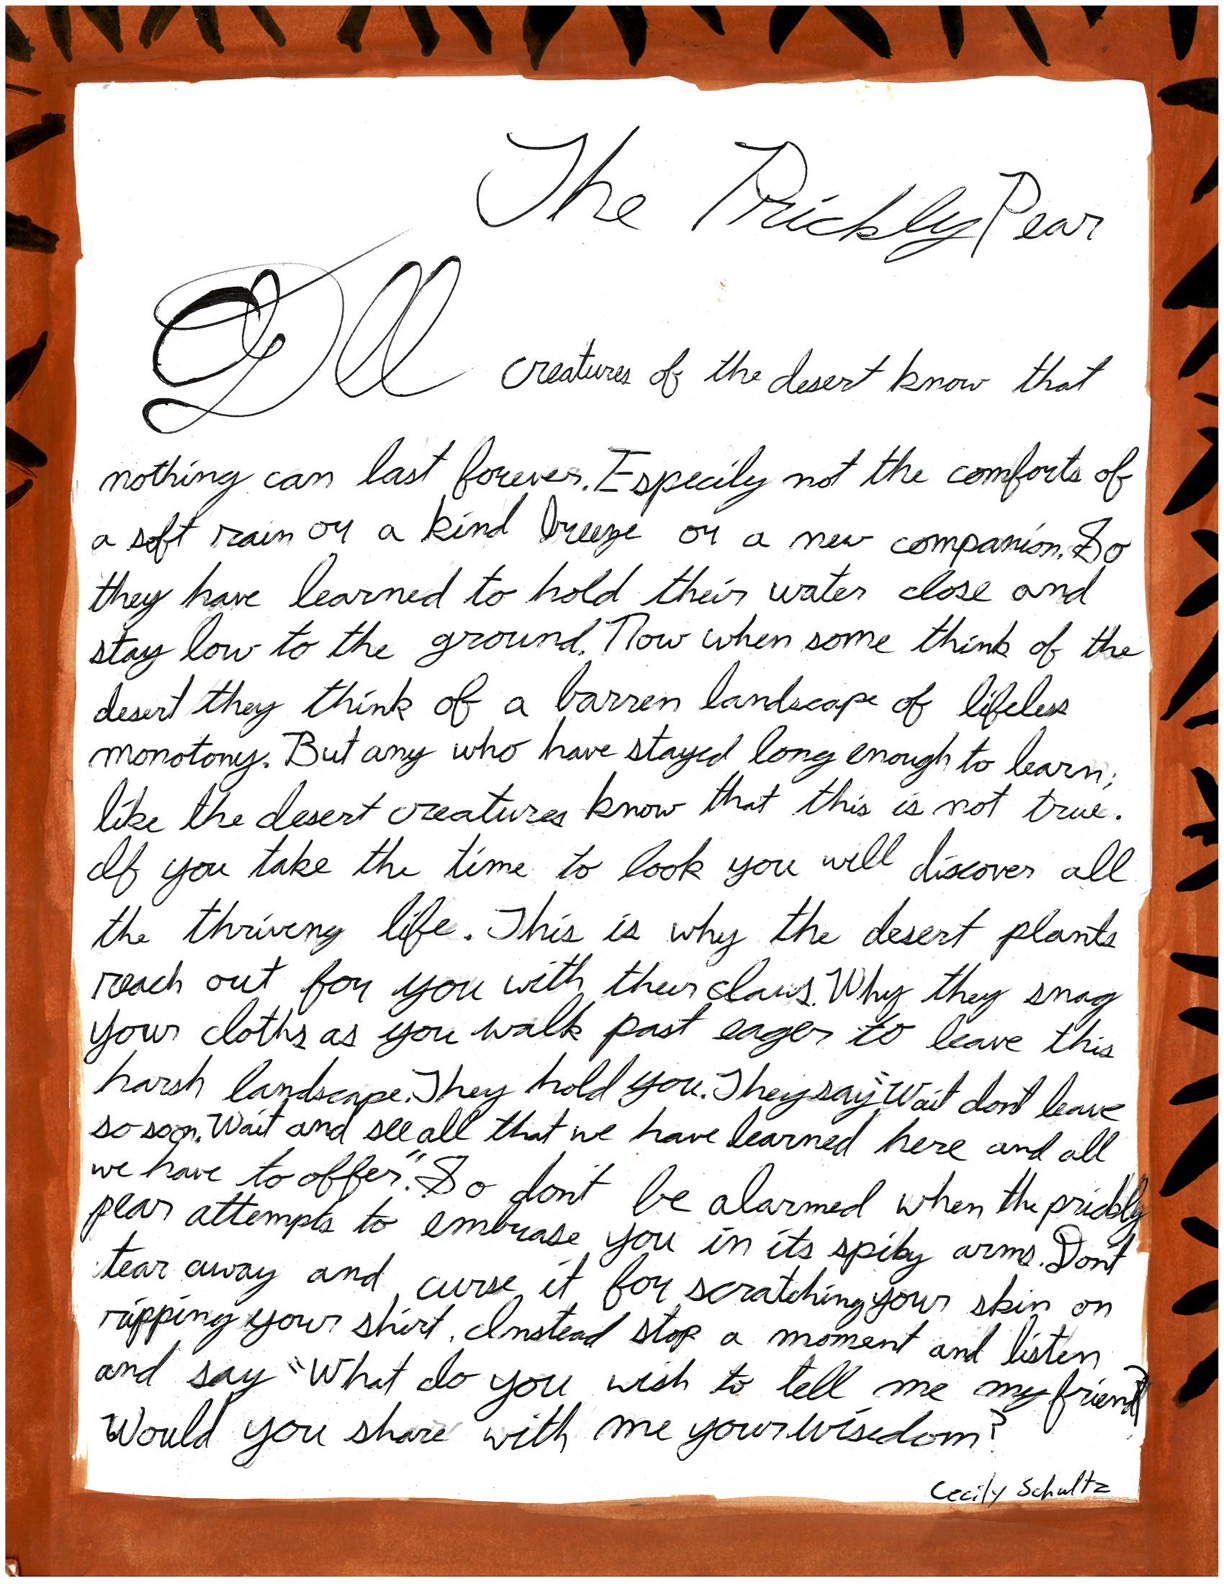 The Prickly Pear
All creatures of the desert know that
nothing can last forever. Especily not the comforts of
a soft rain or a kind breeze or a new companion. So
they have learned to hold their water close and
stay low to the ground. Now when some think of the
desert they think of a barren landscape of lifeless
monotony. But any who have stayed long enough to learn,
like the desert creatures know that this is not true.
If you take the time to look you will discover all
the thriving life. This is why the desert plants
reach out for you with their claws. Why they snag
your cloths as you walk past eager to leave this
harsh landscape. They hold you. They say "Wait don't leave
so soon. Wait and see all that we have learned here and all
we have to offer." So don't be alarmed when the prickly
pear attempts to embrase you in its spiky arms. Don't
tear away and curse it for scratching your skin or
ripping your shirt. Instead stop a moment and listen
and say "What do you wish to tell me my friend?
Would you share with me your wisdom?
Cecily Schultz